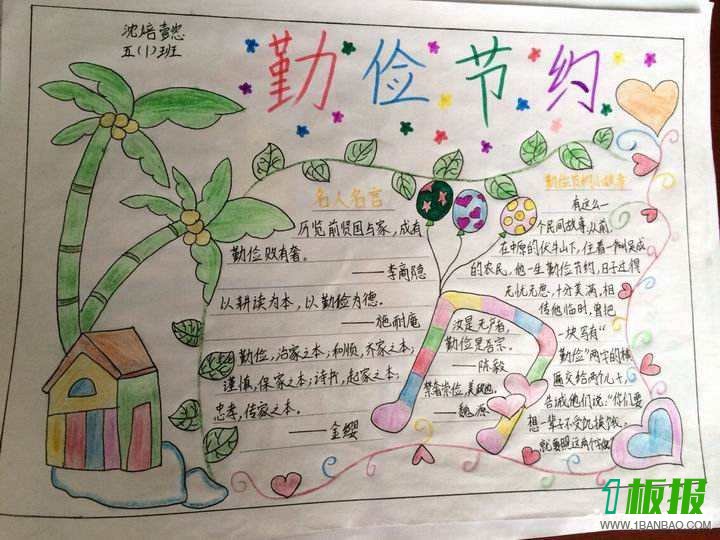 沈焙壹
五(1)班
勤俭节约
名人名言
历览前贤国与家,成有
勤俭败有奢。
——李商隐
以耕读为本,以勤俭为德。
——施耐庵
勤俭,治家之本;和顺,齐家之本;
谨慎,保家之本;诗书,起家之本;
忠孝,传家之本。
——金缨
汝是无产者,
勤俭是吾宗。
——陈毅
禁奢崇俭,美
——魏源
勤俭节约小故事
有这么一
个民间故事,从前,
在中原的伏牛山下,住着一个叫吴成
的农民,他一生勤俭节约,日子过得
无忧无愁,十分美满,相
传他临时,曾把
一块写有“
勤俭”两字的横
匾交给两个儿子,
告诫他们说:“你们要
想一辈子不受饥挨饿,
就要照这两个字做
1板报
WWW.1BANBAO.COM